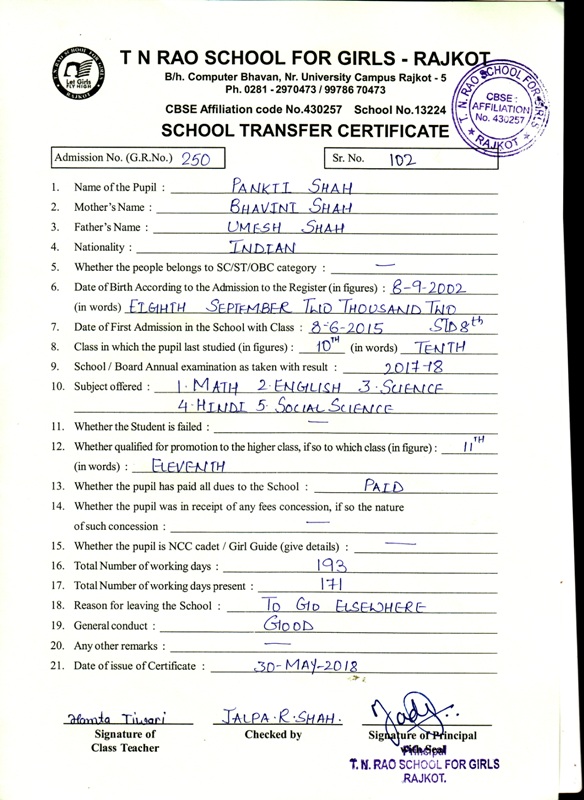 T N RAO SCHOOL FOR GIRLS - RAJKOT
Let Girls
FLY HIGH
B/h. Computer Bhavan, Nr. University Campus Rajkot - 5
Ph. 0281 - 2970473 / 99786 70473
CBSE Affiliation code No.430257 School No.13224
T. N. RAO SCHOOL FOR GIRLS
CBSE :
AFFILIATION
No. 430257
RAJKOT
SCHOOL TRANSFER CERTIFICATE
Admission No. (G.R.No.) 250 Sr. No. 102
1. Name of the Pupil : PANKTI SHAH
2. Mother's Name : BHAVINI SHAH
3. Father's Name : UMESH SHAH
4. Nationality : INDIAN
5. Whether the people belongs to SC/ST/OBC category : —
6. Date of Birth According to the Admission to the Register (in figures) : 8-9-2002
(in words) EIGHTH SEPTEMBER TWO THOUSAND TWO
7. Date of First Admission in the School with Class : 8-6-2015 STD 8th
8. Class in which the pupil last studied (in figures) : 10TH (in words) TENTH
9. School / Board Annual examination as taken with result : 2017-18
10. Subject offered : 1. MATH 2. ENGLISH 3. SCIENCE
4. HINDI 5. SOCIAL SCIENCE
11. Whether the Student is failed : —
12. Whether qualified for promotion to the higher class, if so to which class (in figure) : 11TH
(in words) : ELEVENTH
13. Whether the pupil has paid all dues to the School : PAID
14. Whether the pupil was in receipt of any fees concession, if so the nature
of such concession : —
15. Whether the pupil is NCC cadet / Girl Guide (give details) : —
16. Total Number of working days : 193
17. Total Number of working days present : 171
18. Reason for leaving the School : TO GO ELSEWHERE
19. General conduct : GOOD
20. Any other remarks : —
21. Date of issue of Certificate : 30-MAY-2018
Tiwari JALPA.R.SHAH.
Signature of Checked by Signature of Principal
Class Teacher With Seal
T. N. RAO SCHOOL FOR GIRLS
RAJKOT.